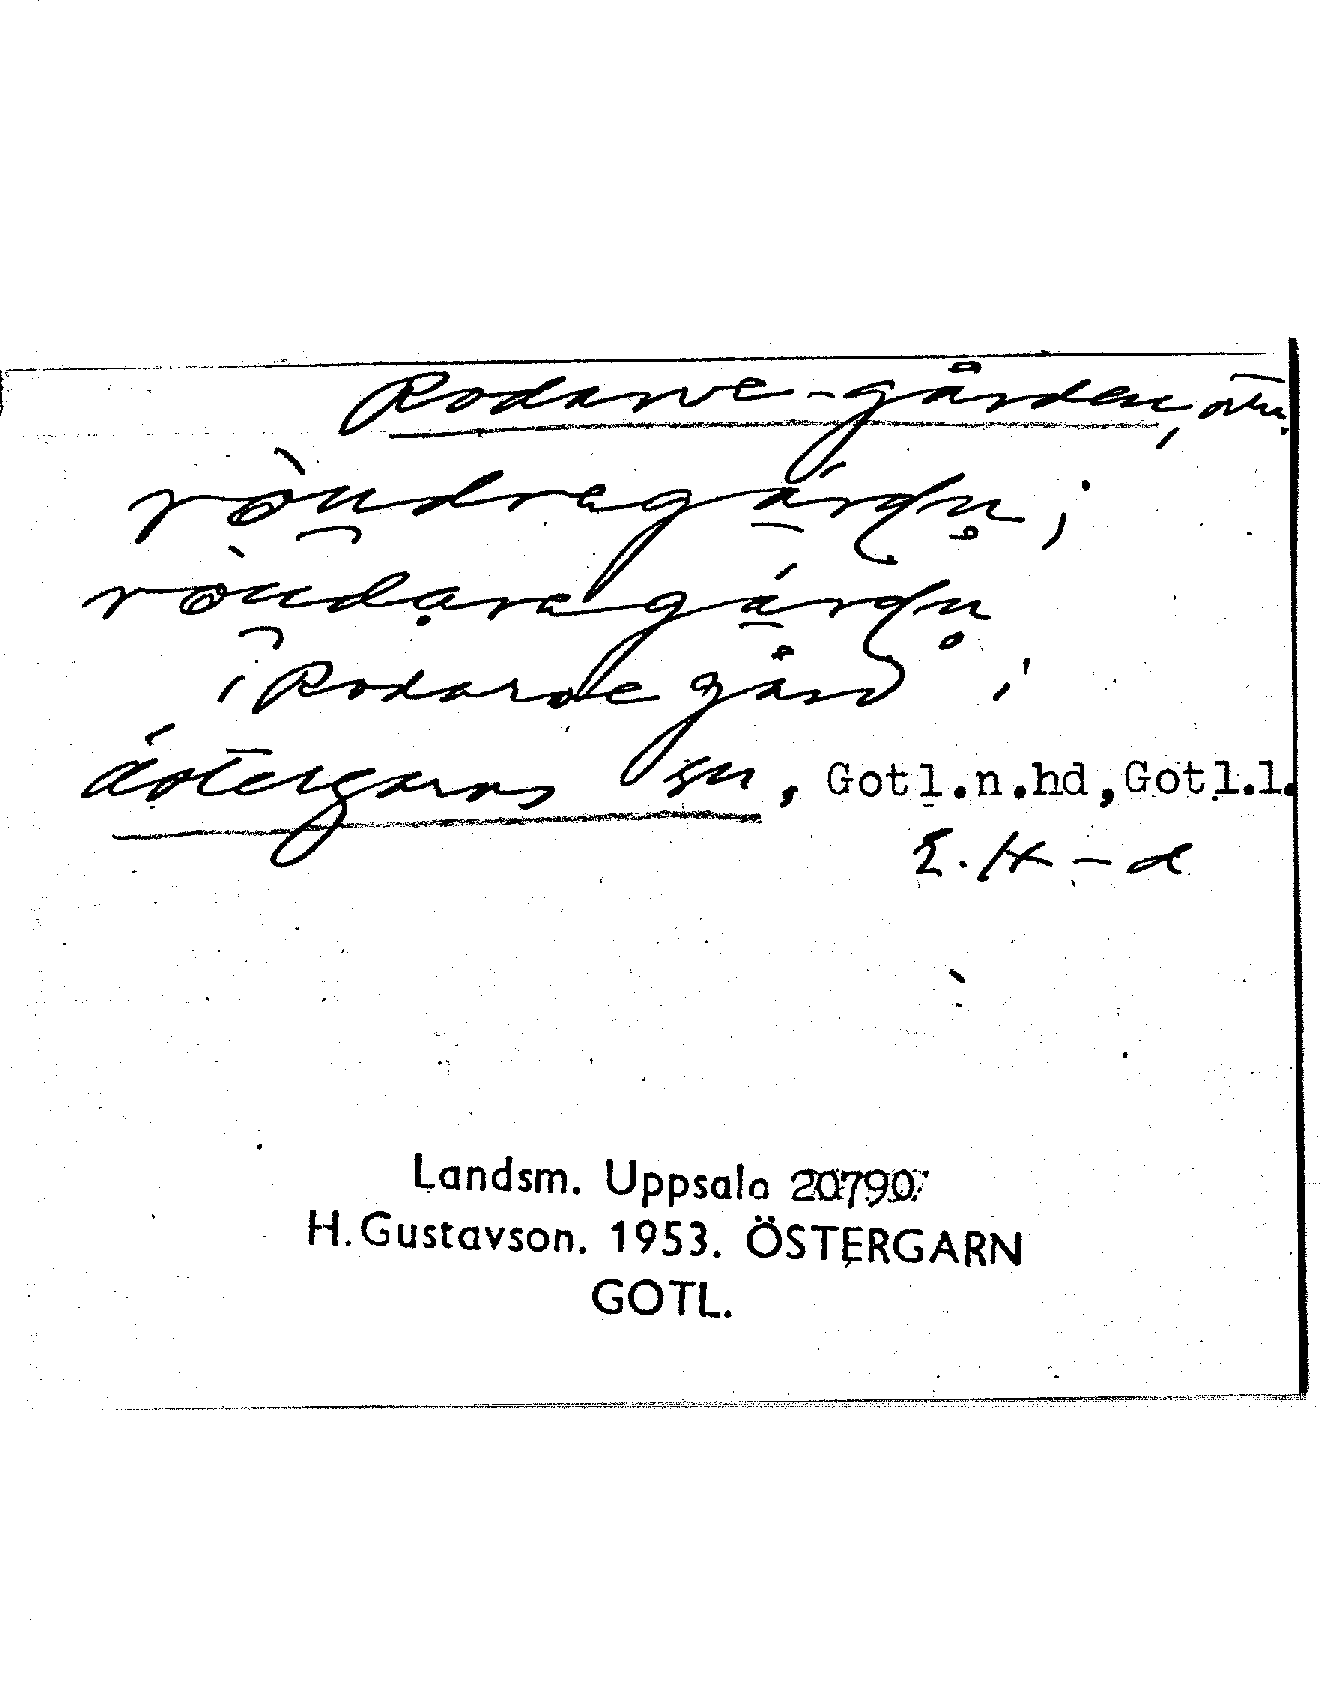 Rodarve-gården, ortn.
ròu̯dragá̱rdn̥;
ròu̯dạragá̱rdn̥
i Rodarve gård i
Östergarns sn, Gotl.n.hd,Gotl.l.
E.H-d
Landsm. Uppsala 20790
H.Gustavson. 1953. ÖSTERGARN
GOTL.